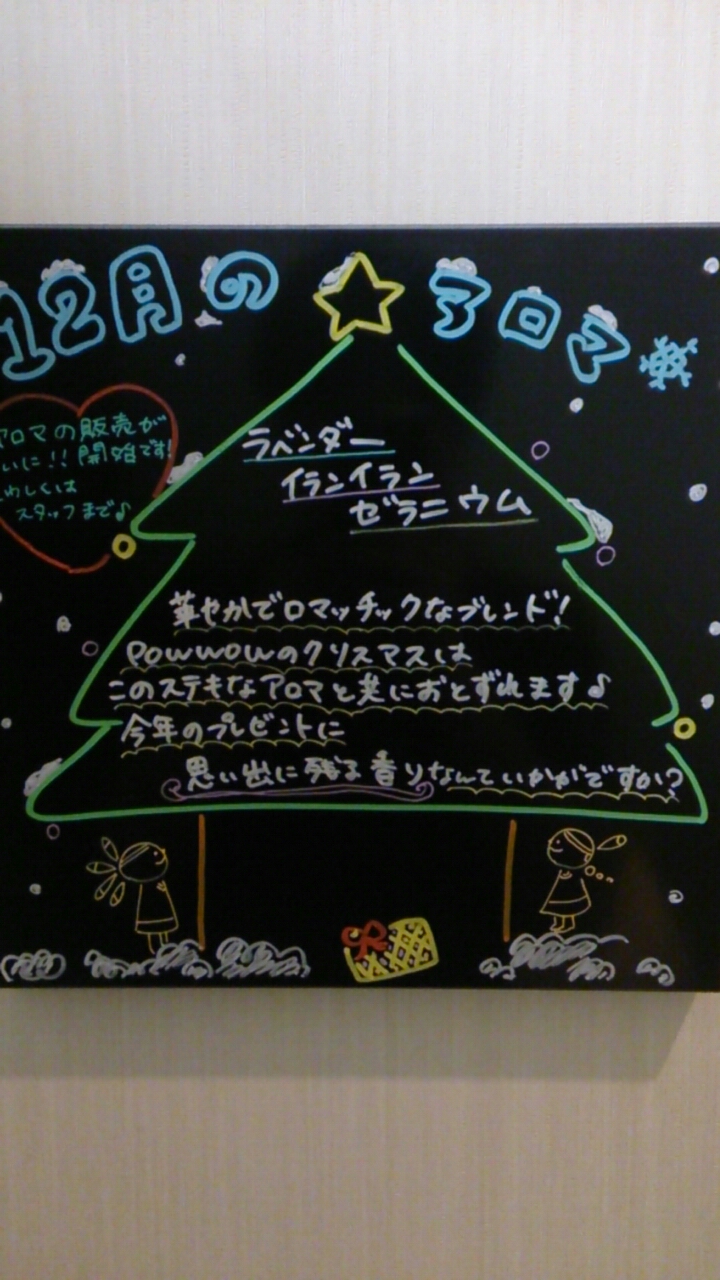 12月の アロマ
アロマの販売が
いに!! 開始です!
わしくは
スタッフまで♪
ラベンダー
イランイラン
ゼラニウム
華やかでロマッチックなブレンド!
powwowのクリスマスは
このステキなアロマと共におとずれます♪
今年のプレゼントに
思い出に残る香りなんていかがですか?